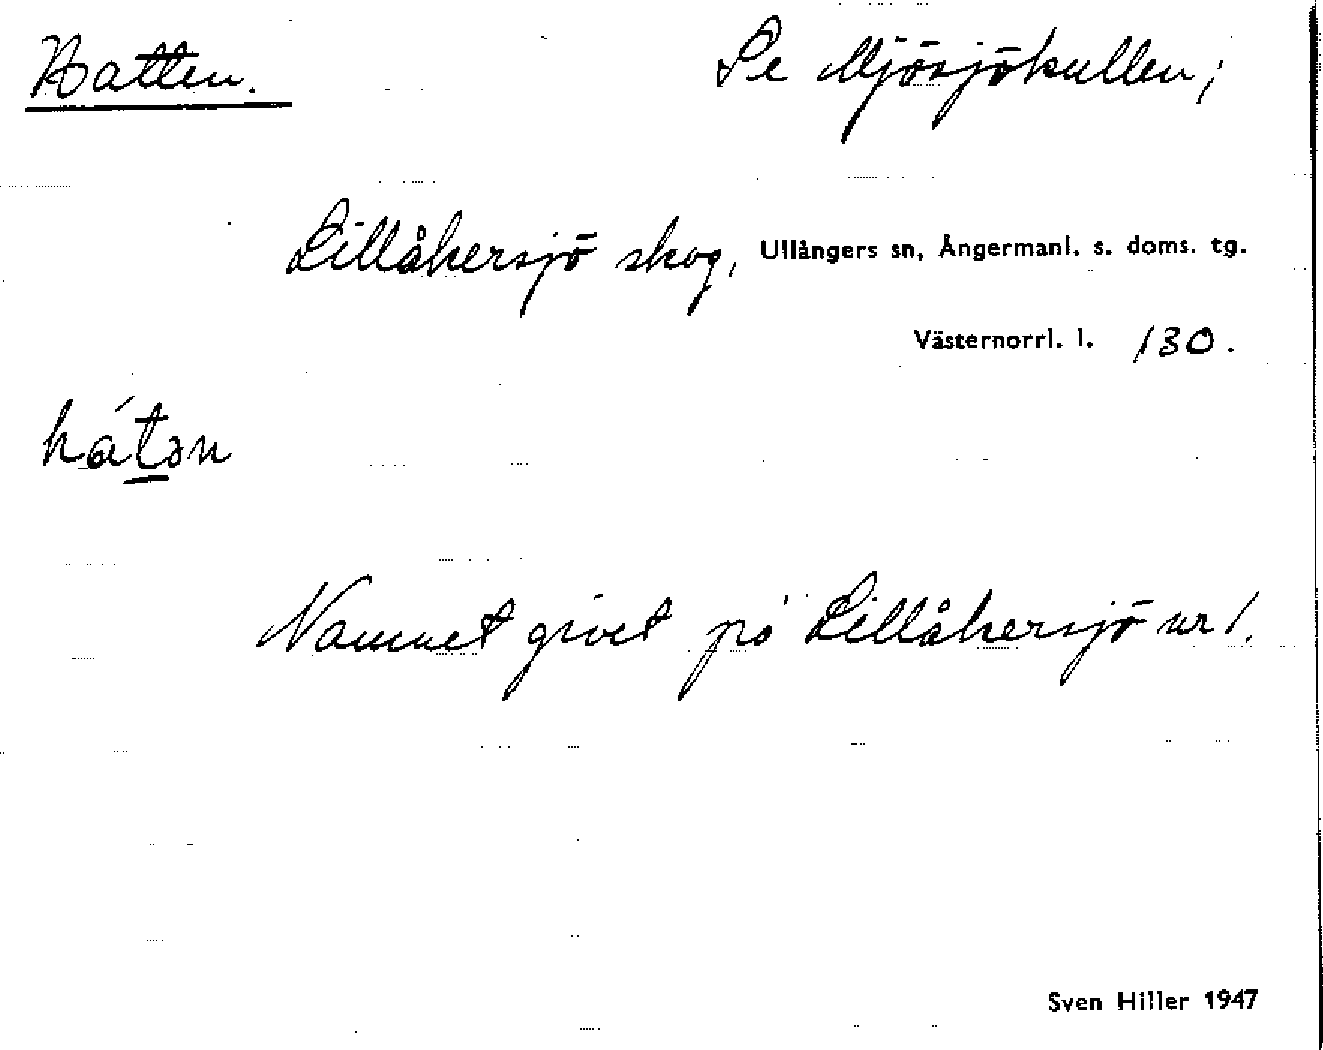 Hatten. Se Mjösjökullen;
Lillåkersjö skog, Ullångers sn, Ångermanl. s. doms. tg.
Västernorrl. l. 130.
hát̲ən
Namnet givet på Lillåkersjö nr 1.
Sven Hiller 1947